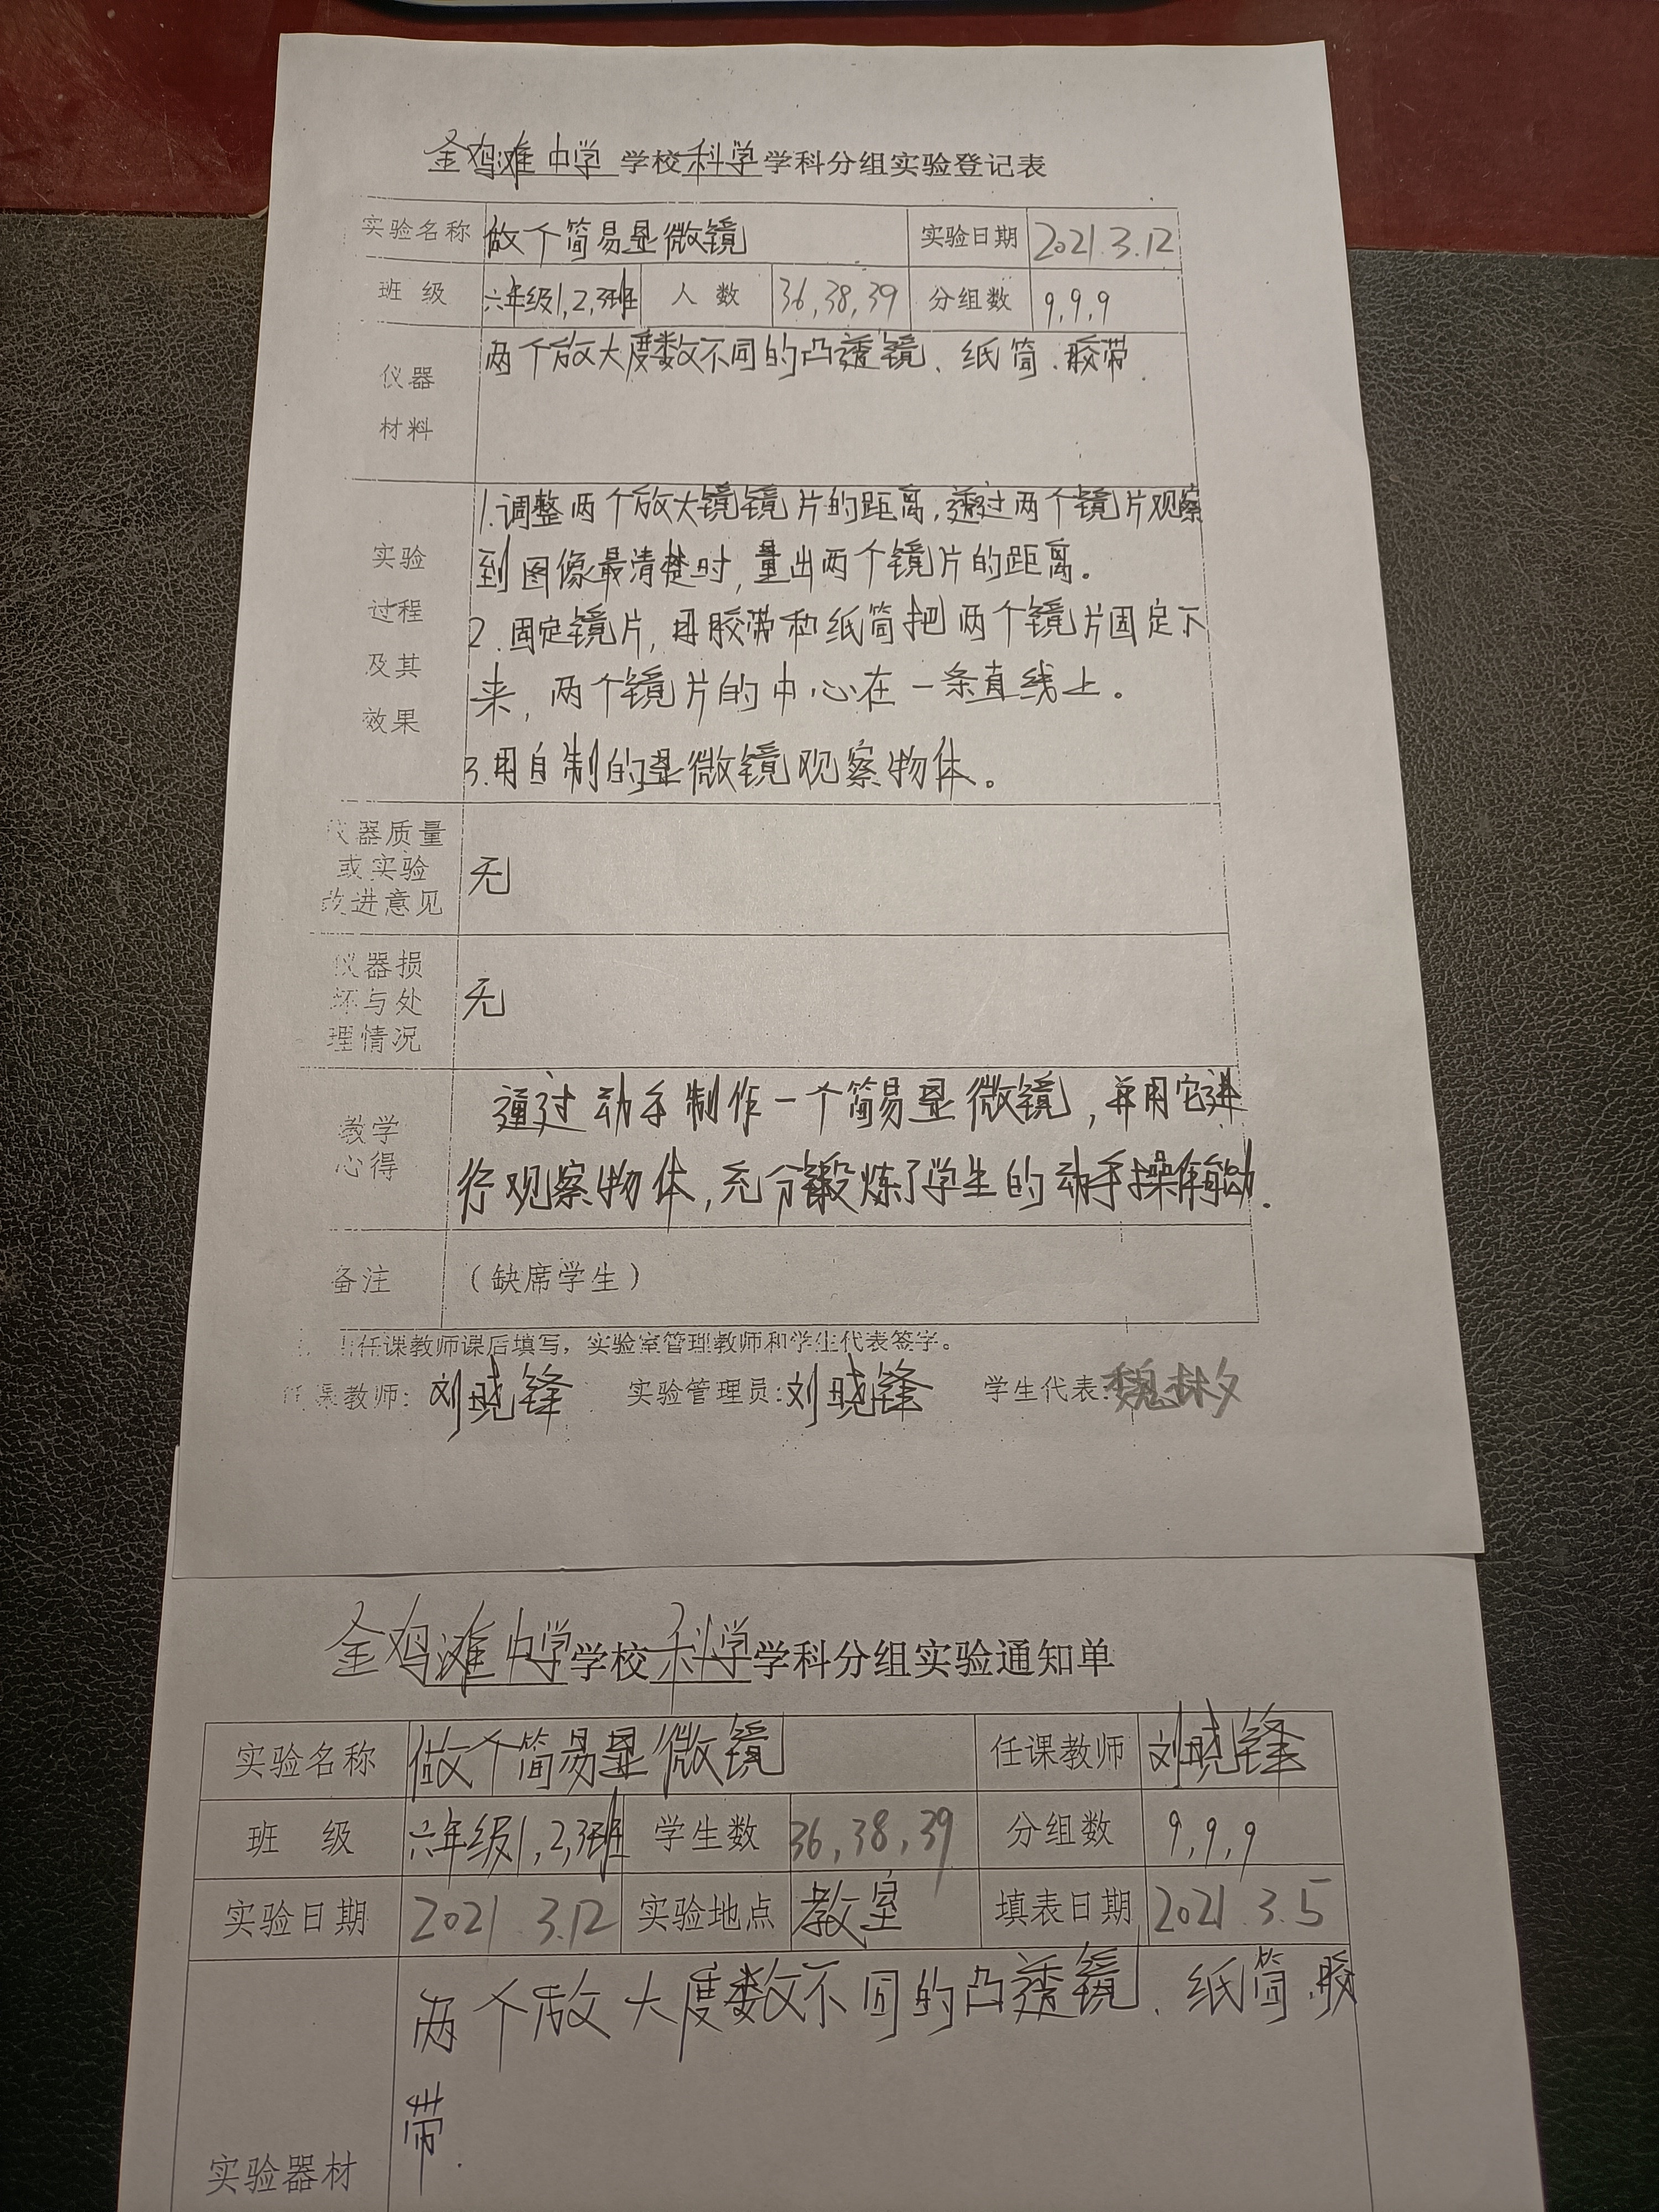 金鸡滩中学 学校 科学 学科分组实验登记表
实验名称 做个简易显微镜 实验日期 2021.3.12
班 级 六年级1,2,3班 人 数 36,38,39 分组数 9,9,9
仪器 两个放大度数不同的凸透镜、纸筒、胶带.
材料
1.调整两个放大镜镜片的距离,透过两个镜片观察
实验 到图像最清楚时,量出两个镜片的距离。
过程 2.固定镜片,用胶带和纸筒把两个镜片固定下
及其 来,两个镜片的中心在一条直线上。
效果
3.用自制的显微镜观察物体。
仪器质量
或实验 无
改进意见
仪器损
坏与处 无
理情况
通过动手制作一个简易显微镜,并用它进
教学
心得 行观察物体,充分锻炼了学生的动手操作能动.
备注 (缺席学生)
任课教师课后填写,实验室管理教师和学生代表签字。
任课教师: 刘晓锋 实验管理员: 刘晓锋 学生代表: 魏
金鸡滩中学 学校 科学 学科分组实验通知单
实验名称 做个简易显微镜 任课教师 刘晓锋
班 级 六年级1,2,3班 学生数 36,38,39 分组数 9,9,9
实验日期 2021.3.12 实验地点 教室 填表日期 2021.3.5
两个放大度数不同的凸透镜、纸筒、胶
带.
实验器材